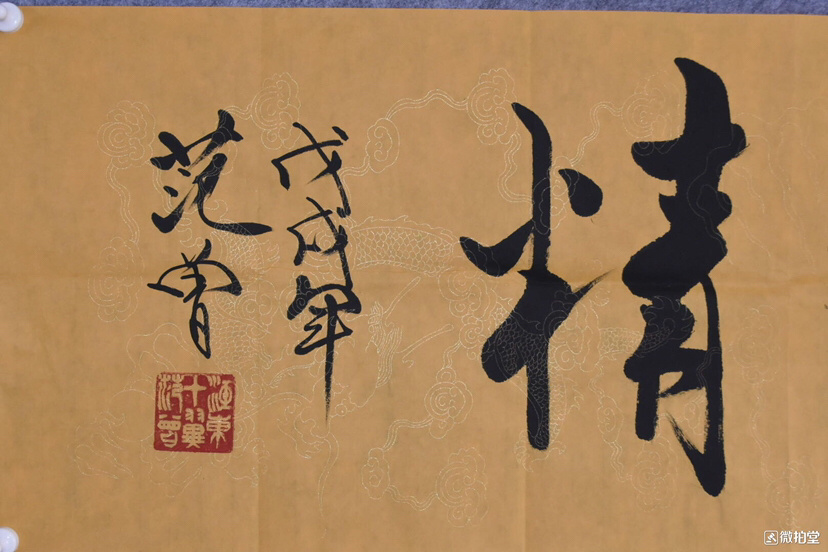 精
戊戌年
范曾
江東
十翼
范曾
微拍堂